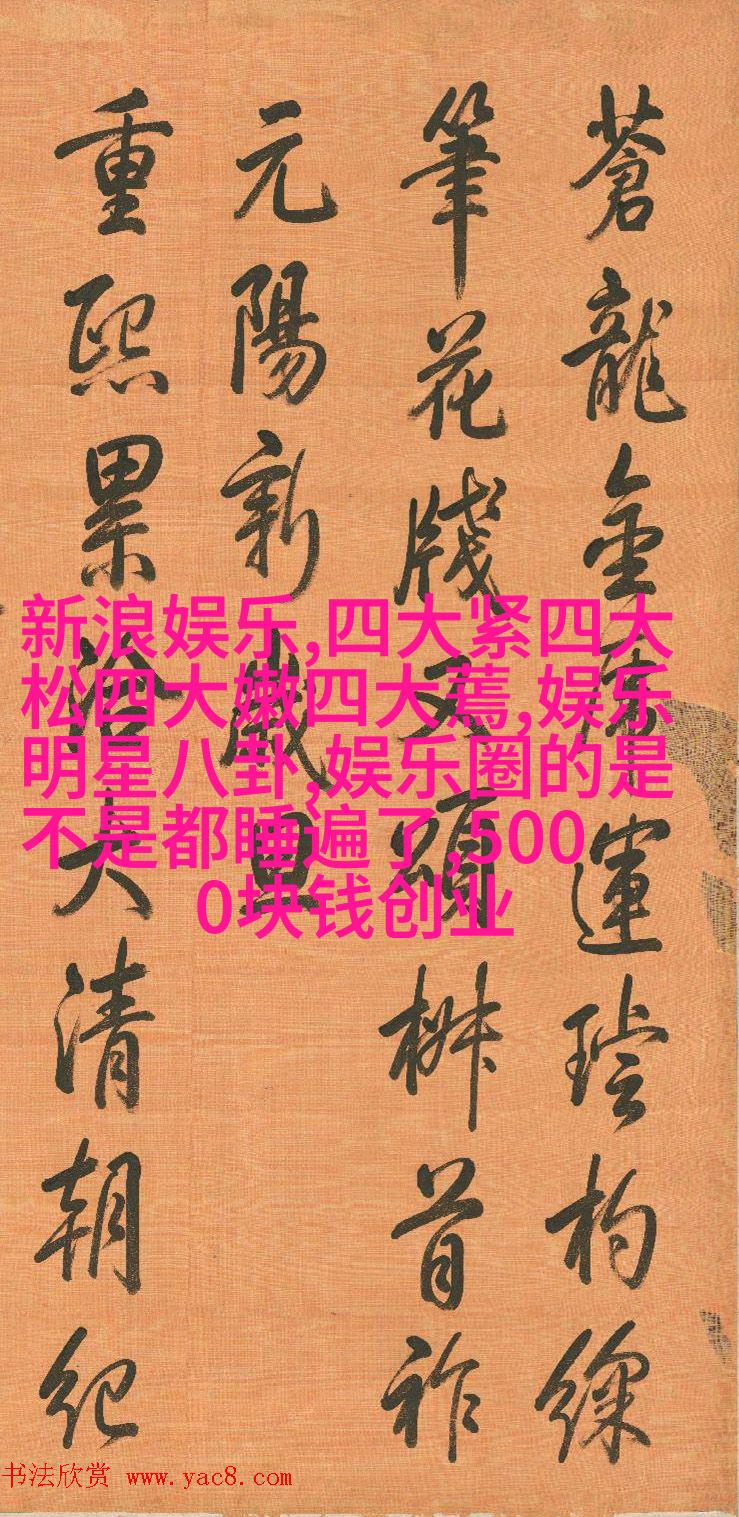 蒼龍金運杓
筆花牋又頌椒首祚
元陽新歲
重熙累洽大清朝紀
新浪娱乐,四大紧四大
松四大嫩四大蔫,娱乐
明星八卦,娱乐圈的是
不是都睡遍了,500
0块钱创业
书法欣赏 www.yac8.com